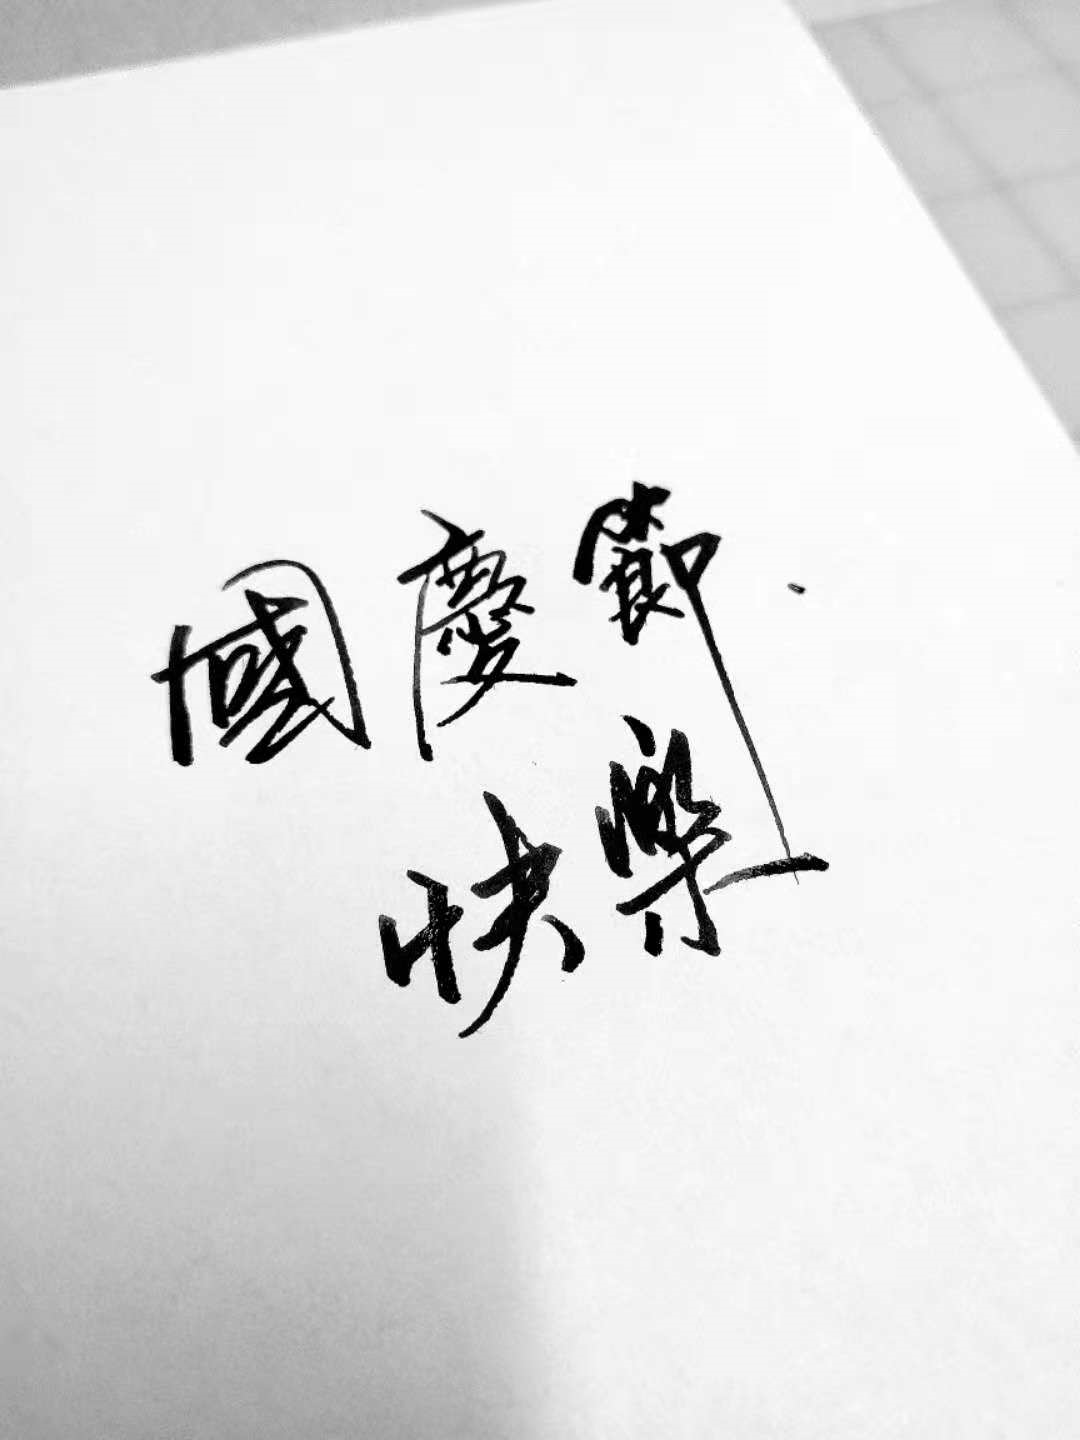 國慶節
快樂